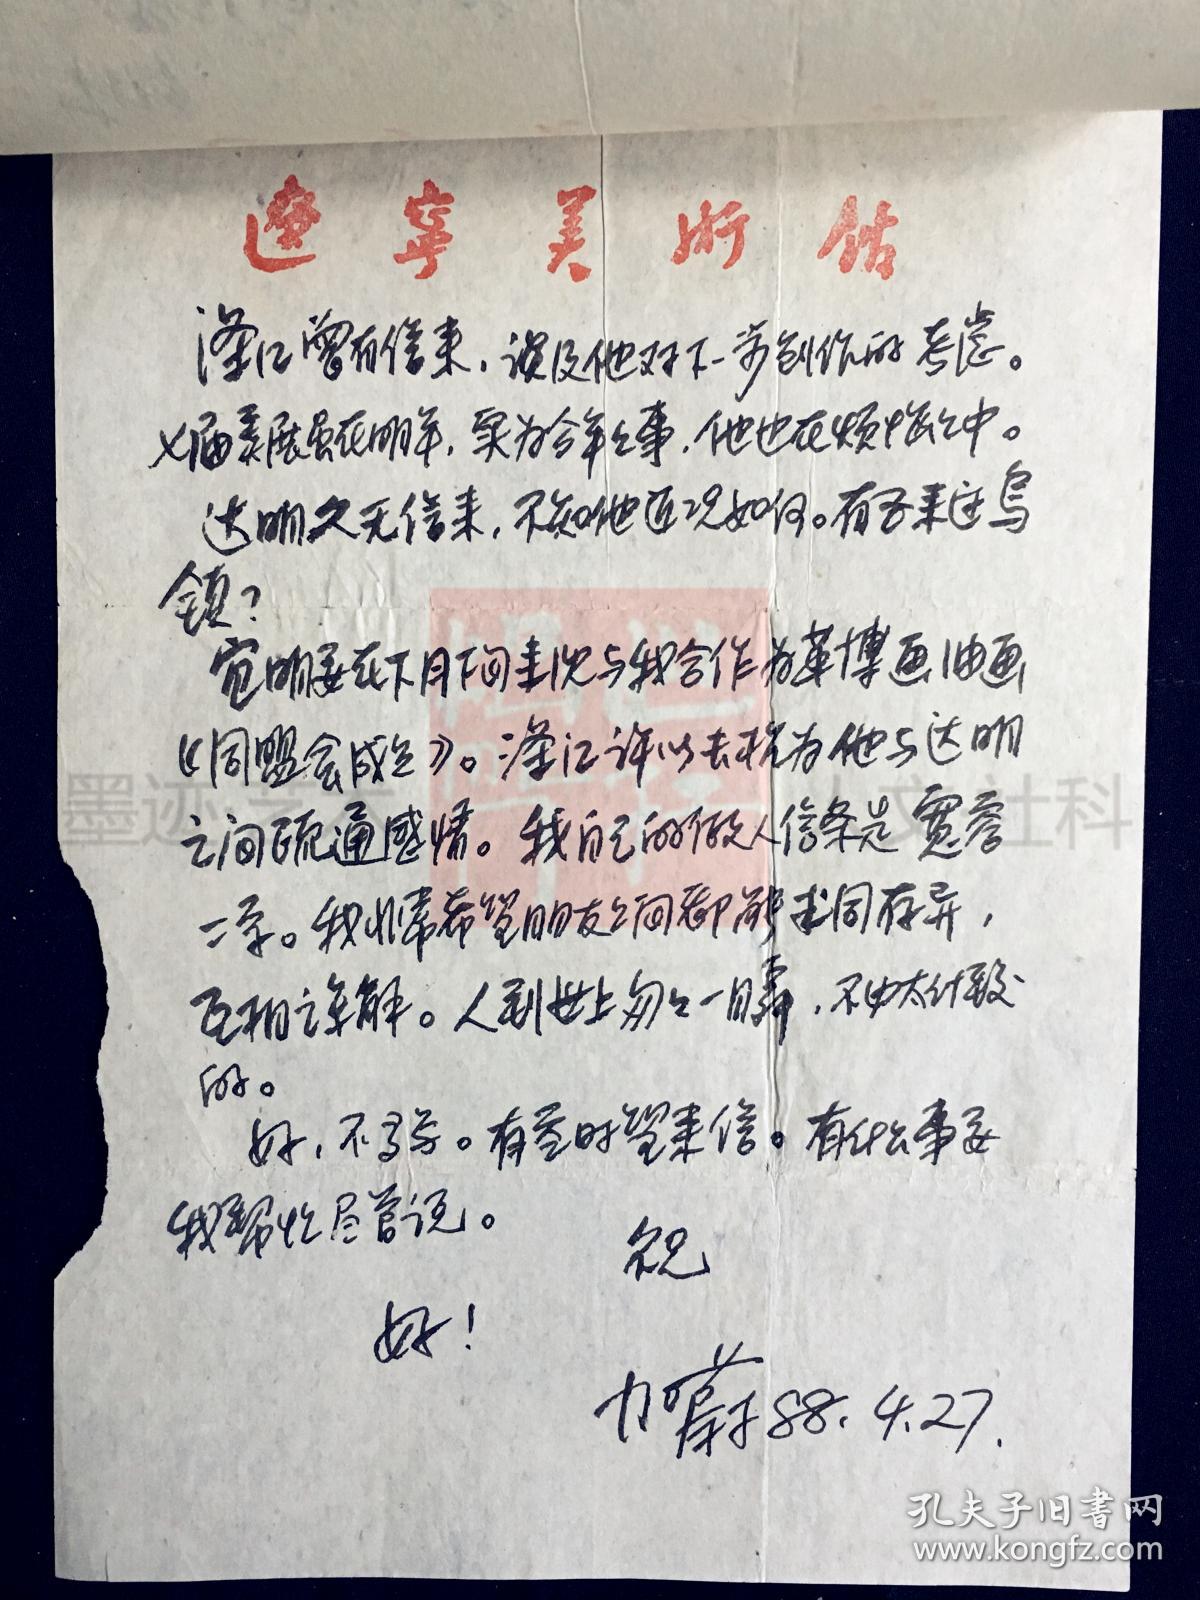 遼寧美術館
泽江曾有信来，谈及他对下一步创作的考虑。
七届美展虽在明年，实为今年之事，他也在烦恼之中。
达明久无信来，不知他近况如何。有否来过乌
镇？
宽明要在下月下旬来沈与我合作为革博画油画
《同盟会成立》。泽江许以去杭为他与达明
之间疏通感情。我自己的做人信条是宽容
二字。我非常希望朋友之间都能求同存异，
互相谅解。人到世上匆匆一目，不必太计较
的。
好，不多写。有空时望来信。有什么事要
我帮忙尽管说。
祝
好！
加蔚 88.4.27.
墨迹 社科
孔夫子旧书网
www.kongfz.com